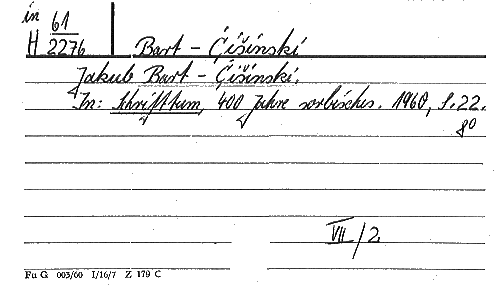 in 61
H 2276 Bart - Ćišinski
Jakub Bart - Ćišinski.
In: Schrifttum, 400 Jahre sorbisches. 1960, S. 22.
8°
VII/2
Fu G 003/60 I/16/7 Z 179 C